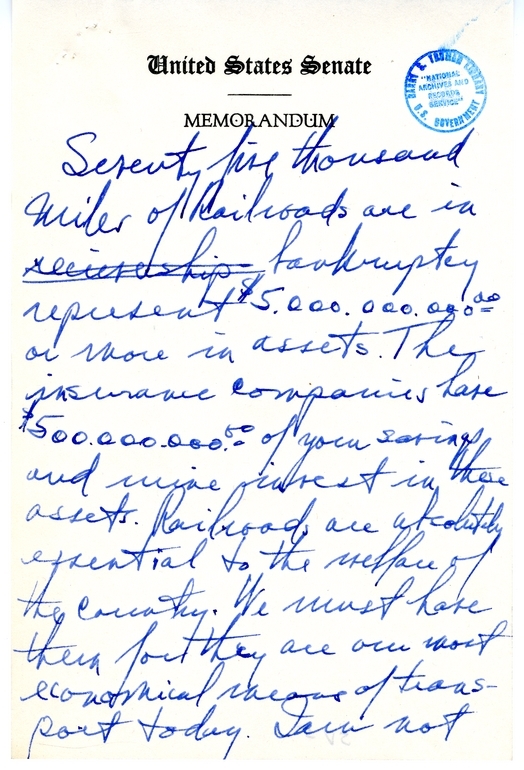 United States Senate
MEMORANDUM
HARRY S. TRUMAN LIBRARY
"NATIONAL
ARCHIVES AND
RECORDS
SERVICE"
U. S. GOVERNMENT
Seventy five thousand
Miles of Railroads are in
recievership bankruptcy
represent $5.000.000.000.00
or more in assets. The
insurance companies have
$500.000.000.00 of your savings
and mine invest in these
assets. Railroads are absolutely
essential to the welfare of
the country. We must have
them for they are our most
economical means of trans-
port today. I am not